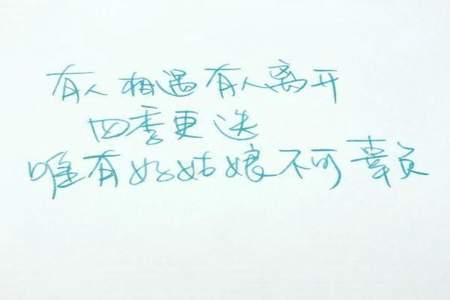 有人相遇有人离开
四季更迭
唯有好姑娘不可辜负